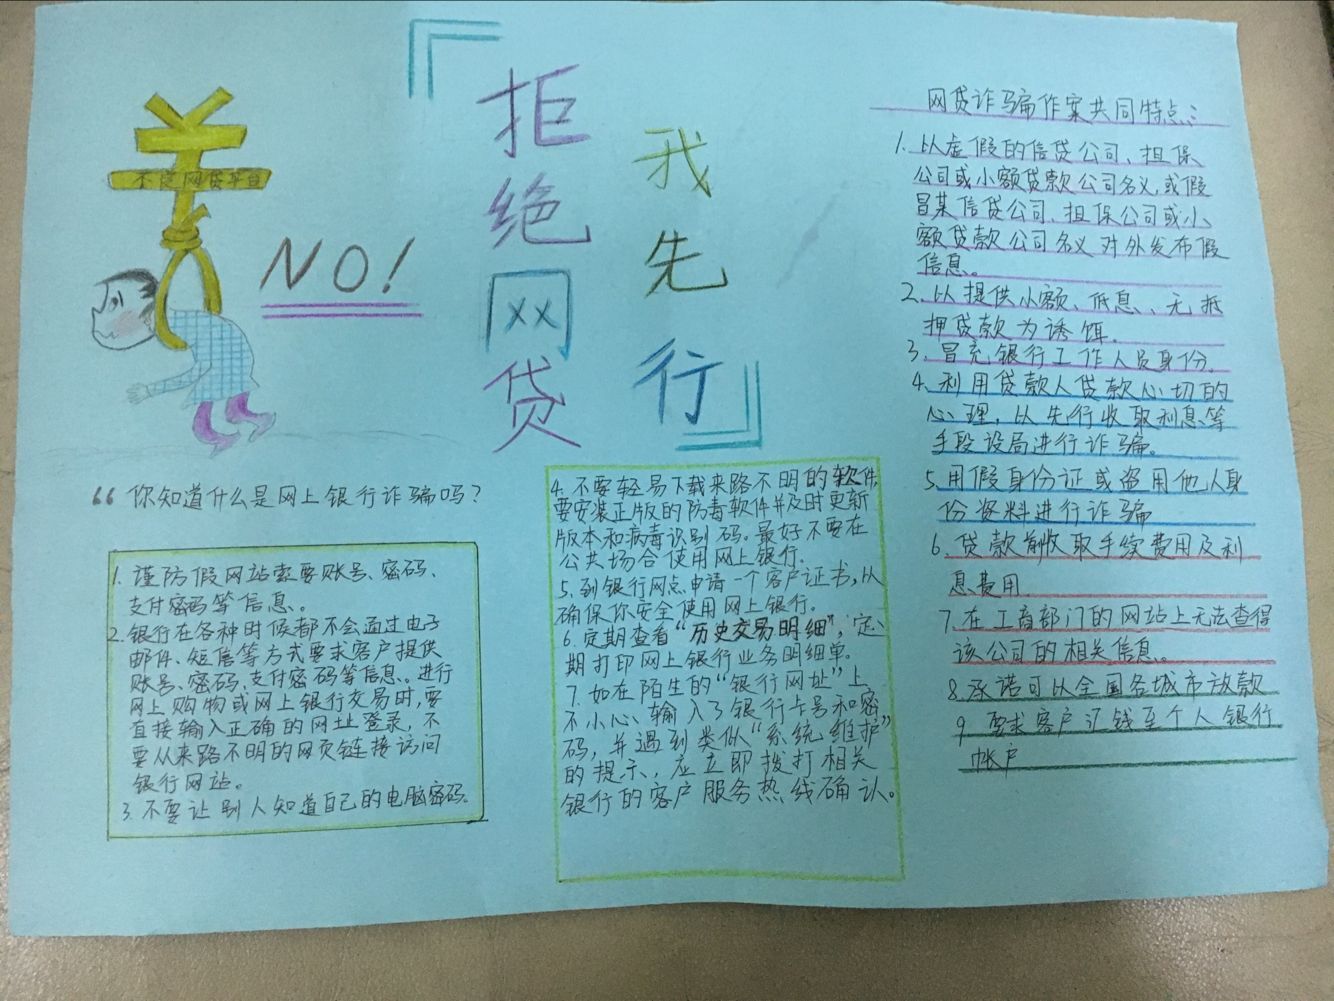 拒绝网贷
我先行
不良网贷平台
NO!
“你知道什么是网上银行诈骗吗?
1. 谨防假网站索要账号、密码、
支付密码等信息。
2. 银行在各种时候都不会通过电子
邮件、短信等方式要求客户提供
账号、密码、支付密码等信息。进行
网上购物或网上银行交易时,要
直接输入正确的网址登录,不
要从来路不明的网页链接访问
银行网站。
3. 不要让别人知道自己的电脑密码。
4. 不要轻易下载来路不明的软件
要安装正版的防毒软件并及时更新
版本和病毒识别码。最好不要在
公共场合使用网上银行.
5. 到银行网点申请一个客户证书,从
确保你安全使用网上银行。
6. 定期查看“历史交易明细”,定
期打印网上银行业务明细单.
7. 如在陌生的“银行网址”上
不小心、输入了银行卡号和密
码,并遇到类似“系统维护”
的提示,应立即拨打相关
银行的客户服务热线确认。
网贷诈骗作案共同特点:
1. 以虚假的信贷公司、担保
公司或小额贷款公司名义,或假
冒某信贷公司、担保公司或小
额贷款公司名义对外发布假
信息。
2. 以提供小额、低息、无抵
押贷款为诱饵.
3. 冒充银行工作人员身份.
4. 利用贷款人贷款心切的
心理,以先行收取利息等
手段设局进行诈骗。
5. 用假身份证或盗用他人身
份资料进行诈骗
6. 贷款前收取手续费用及利
息费用.
7. 在工商部门的网站上无法查得
该公司的相关信息。
8. 承诺可以全国各城市放款
9. 要求客户汇钱至个人银行
帐户